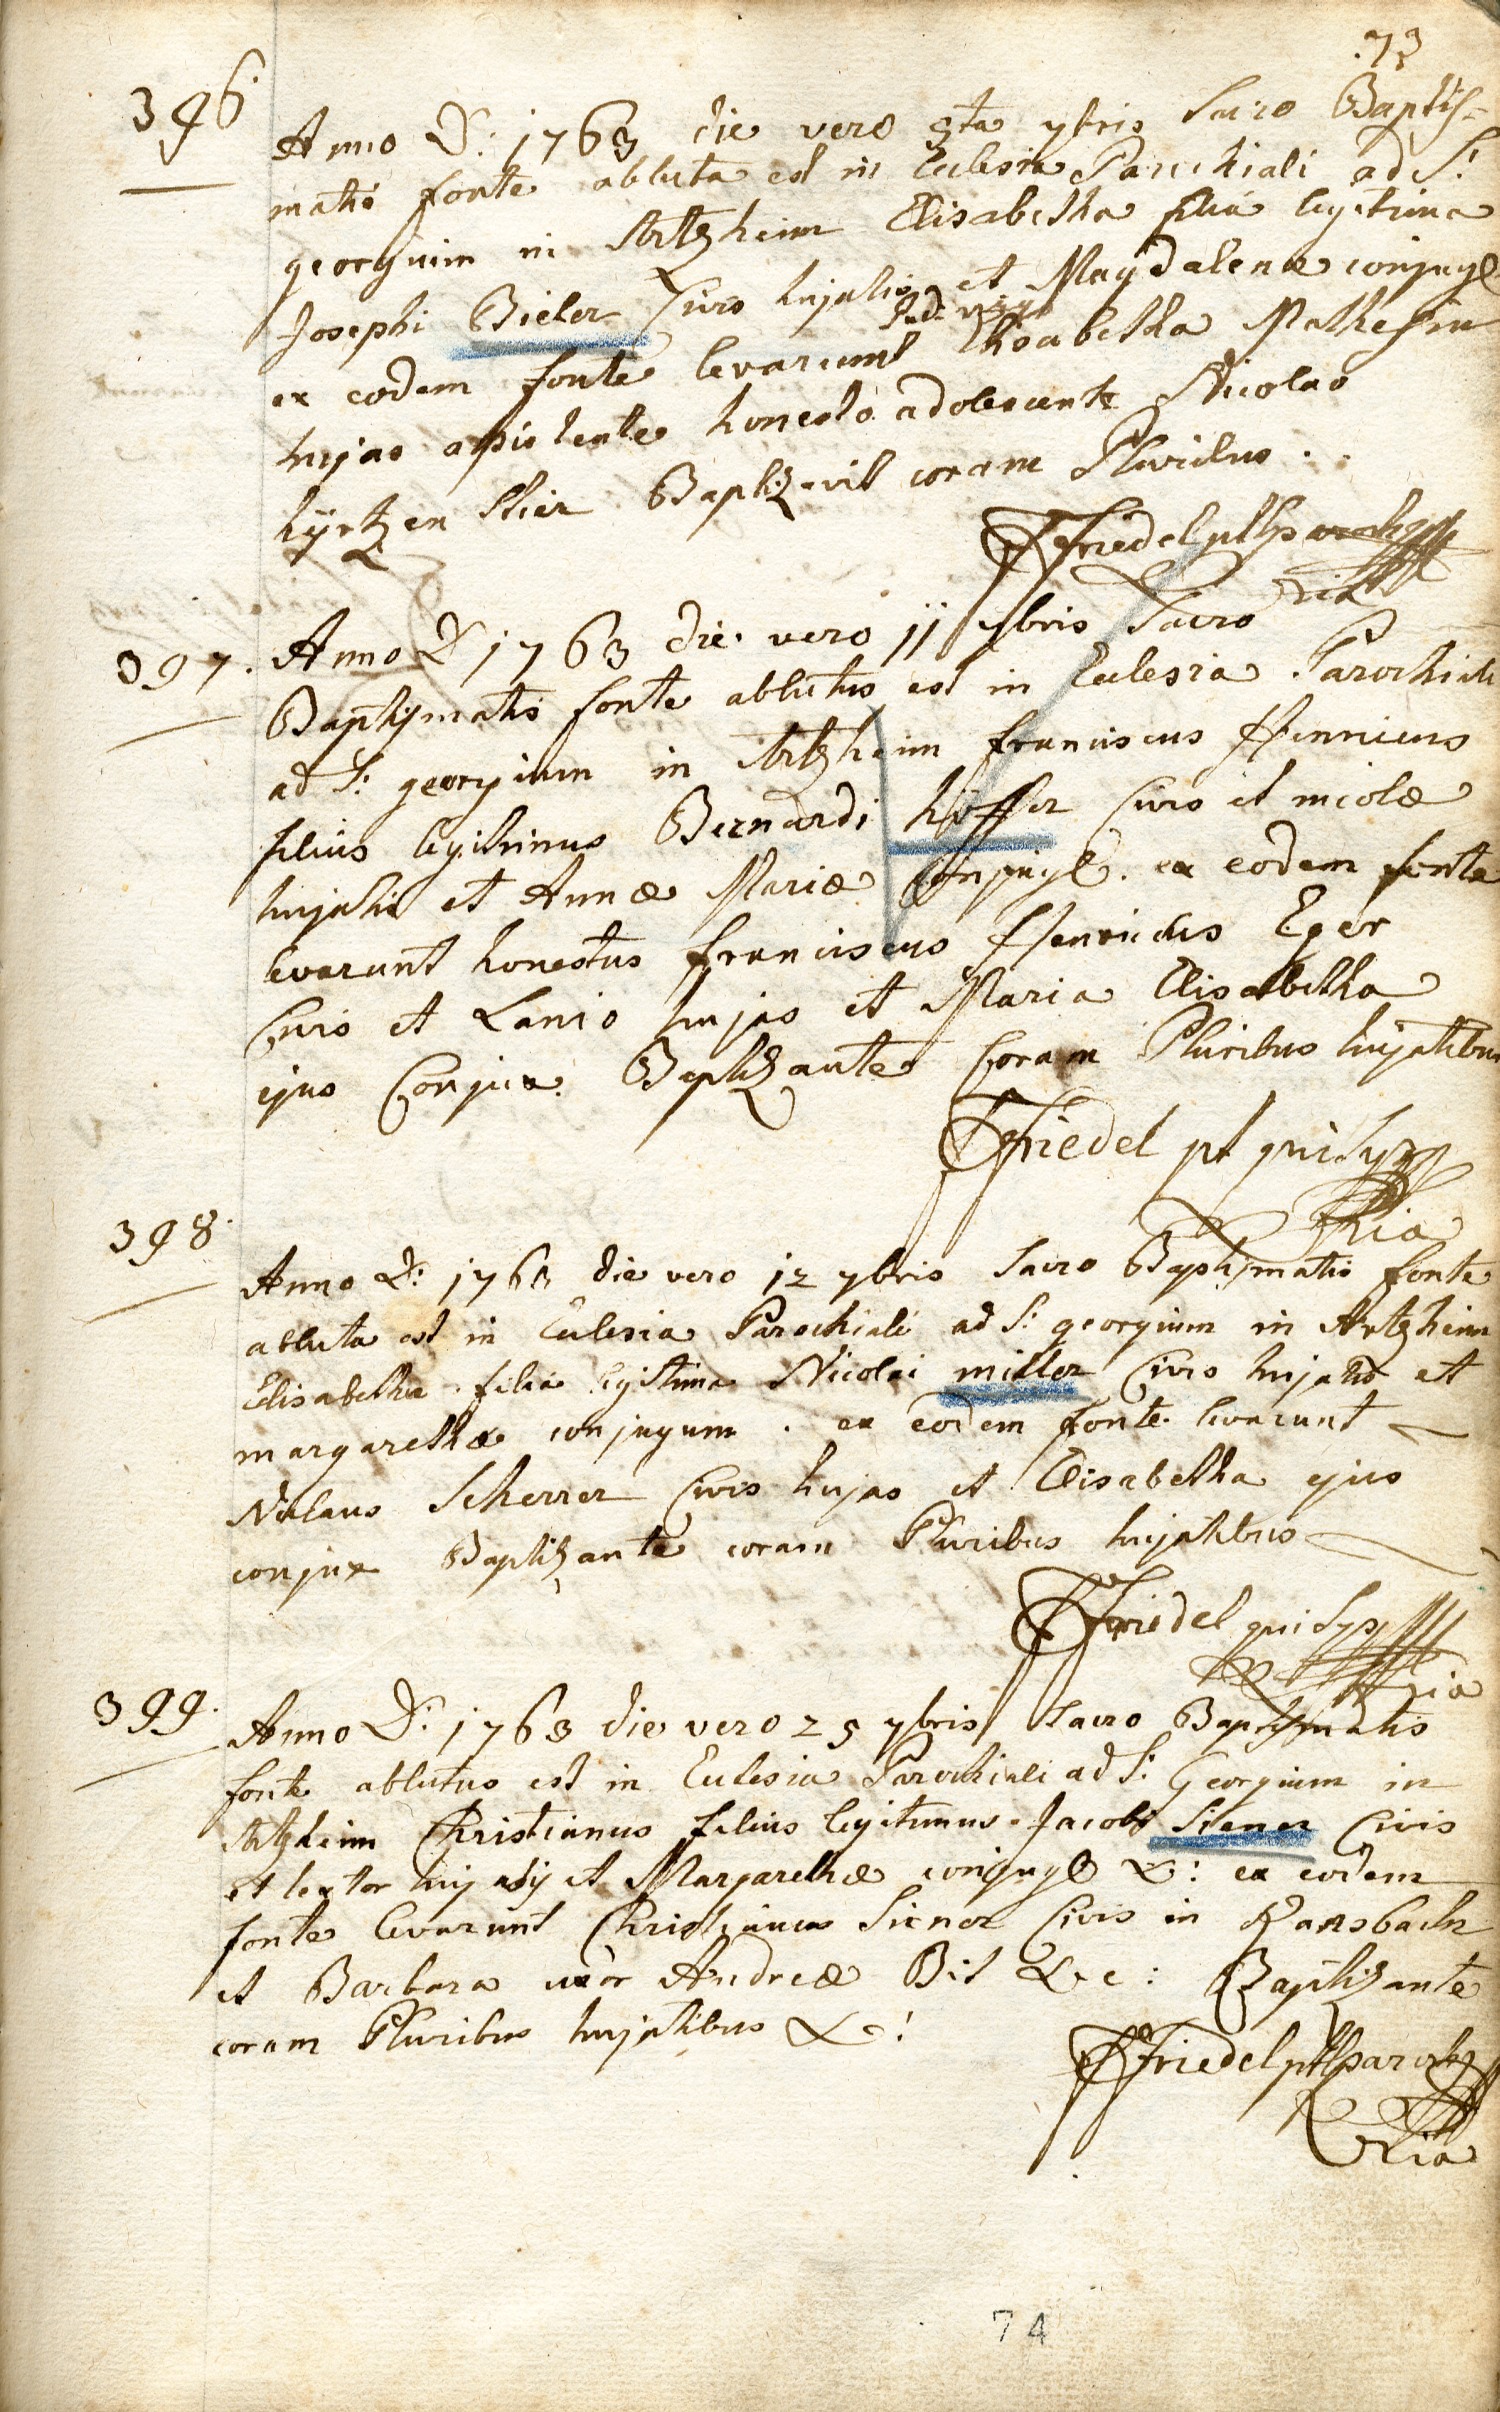 73
396
Anno D: 1763 die vero 5ta 7bris Sacro Baptis-
matis fonte abluta est in Eclesia Parochiali ad S:
georgium in Artzheim Elisabetha filia legitima
Josephi Bieler Civis hujatis et Magdalenæ conjugū
ex eodem fonte levarunt Elisabetha
hujas assistente honesto adolescente Nicolao
Baptizavit coram Pluribus.
Friedel pt parochus
ria
397.
Anno D 1763 die vero 11 7bris Sacro
Baptismatis fonte ablutus est in Eclesia Parochiali
ad S: georgium in Artzheim franciscus Hennricus
filius legitimus Bernardi hoffer Civis et incolæ
hujatis et Annæ Mariæ Conjugū. ex eodem fonte
levarunt honestus franciscus Henricus Eger
Civis et Lanio hujas et Maria Elisabetha
ejus Conjux. Baptizante Coram Pluribus hujatibus
Friedel pt qui spr
ria
398.
Anno D: 1763 die vero 12 7bris Sacro Baptismatis fonte
abluta est in Eclesia Parochiali ad S: georgium in Artzheim
Elisabetha filia legitima Nicolai miller Civis hujatis et
margarethæ conjugum. ex eodem fonte levarunt
Niclaus Scherrer Civis hujas et Elisabetha ejus
conjux Baptizante coram Pluribus hujatibus
Friedel qui spr
ria
399.
Anno D: 1763 die vero 25 7bris Sacro Baptismatis
fonte ablutus est in Eclesia Parochiali ad S: Georgium in
Artzheim Christianus filius legitimus Jacobi Siener Civis
et textor hujatis et Margarethæ conjugū &: ex eodem
fonte levarunt Christianus Siener Civis in Ransbach
et Barbara uxor Andreæ Bit &c: Baptizante
coram Pluribus hujatibus &!
Friedel pt parochus
ria
74